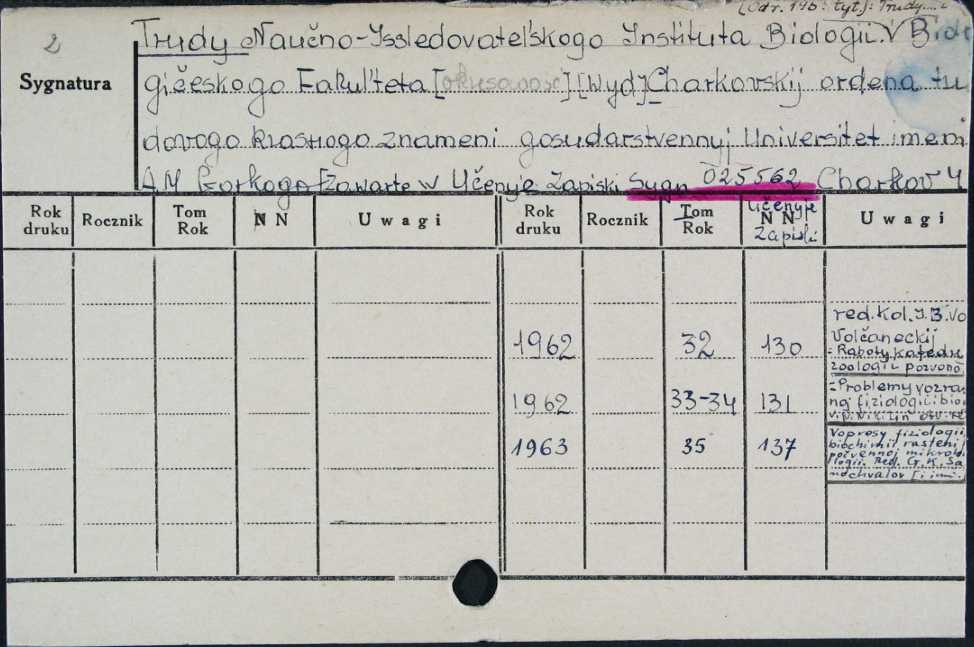 [Odr. tyt.: Trudy...
2
Trudy Naučno-Issledovatel'skogo Instituta Biologii i Biolo
Sygnatura
gičeskogo Fakul'teta [okresowość] [Wyd] Charkovskij ordena tu
dovogo krasnogo znameni gosudarstvennyj Universitet imeni
A.M. Gorkogo [Zawarte w Učenyje Zapiski Sygn. 025562 Charkov
Rok druku Rocznik Tom Rok N N Uwagi Rok druku Rocznik Tom Rok N N Učenyje Zapiski Uwagi
red. kol. I.B. Vo
Volčaneckij
1962 32 130 = Raboty katedry
zoologii pozvono
= Problemy vozra
1962 33-34 131 noj fiziologii i bioi
Voprosy fiziologii,
1963 35 137 biochimii rastenij
počvennoj mikrobi
ologii. Red. G.K. Sa
mochvalov [i in.]